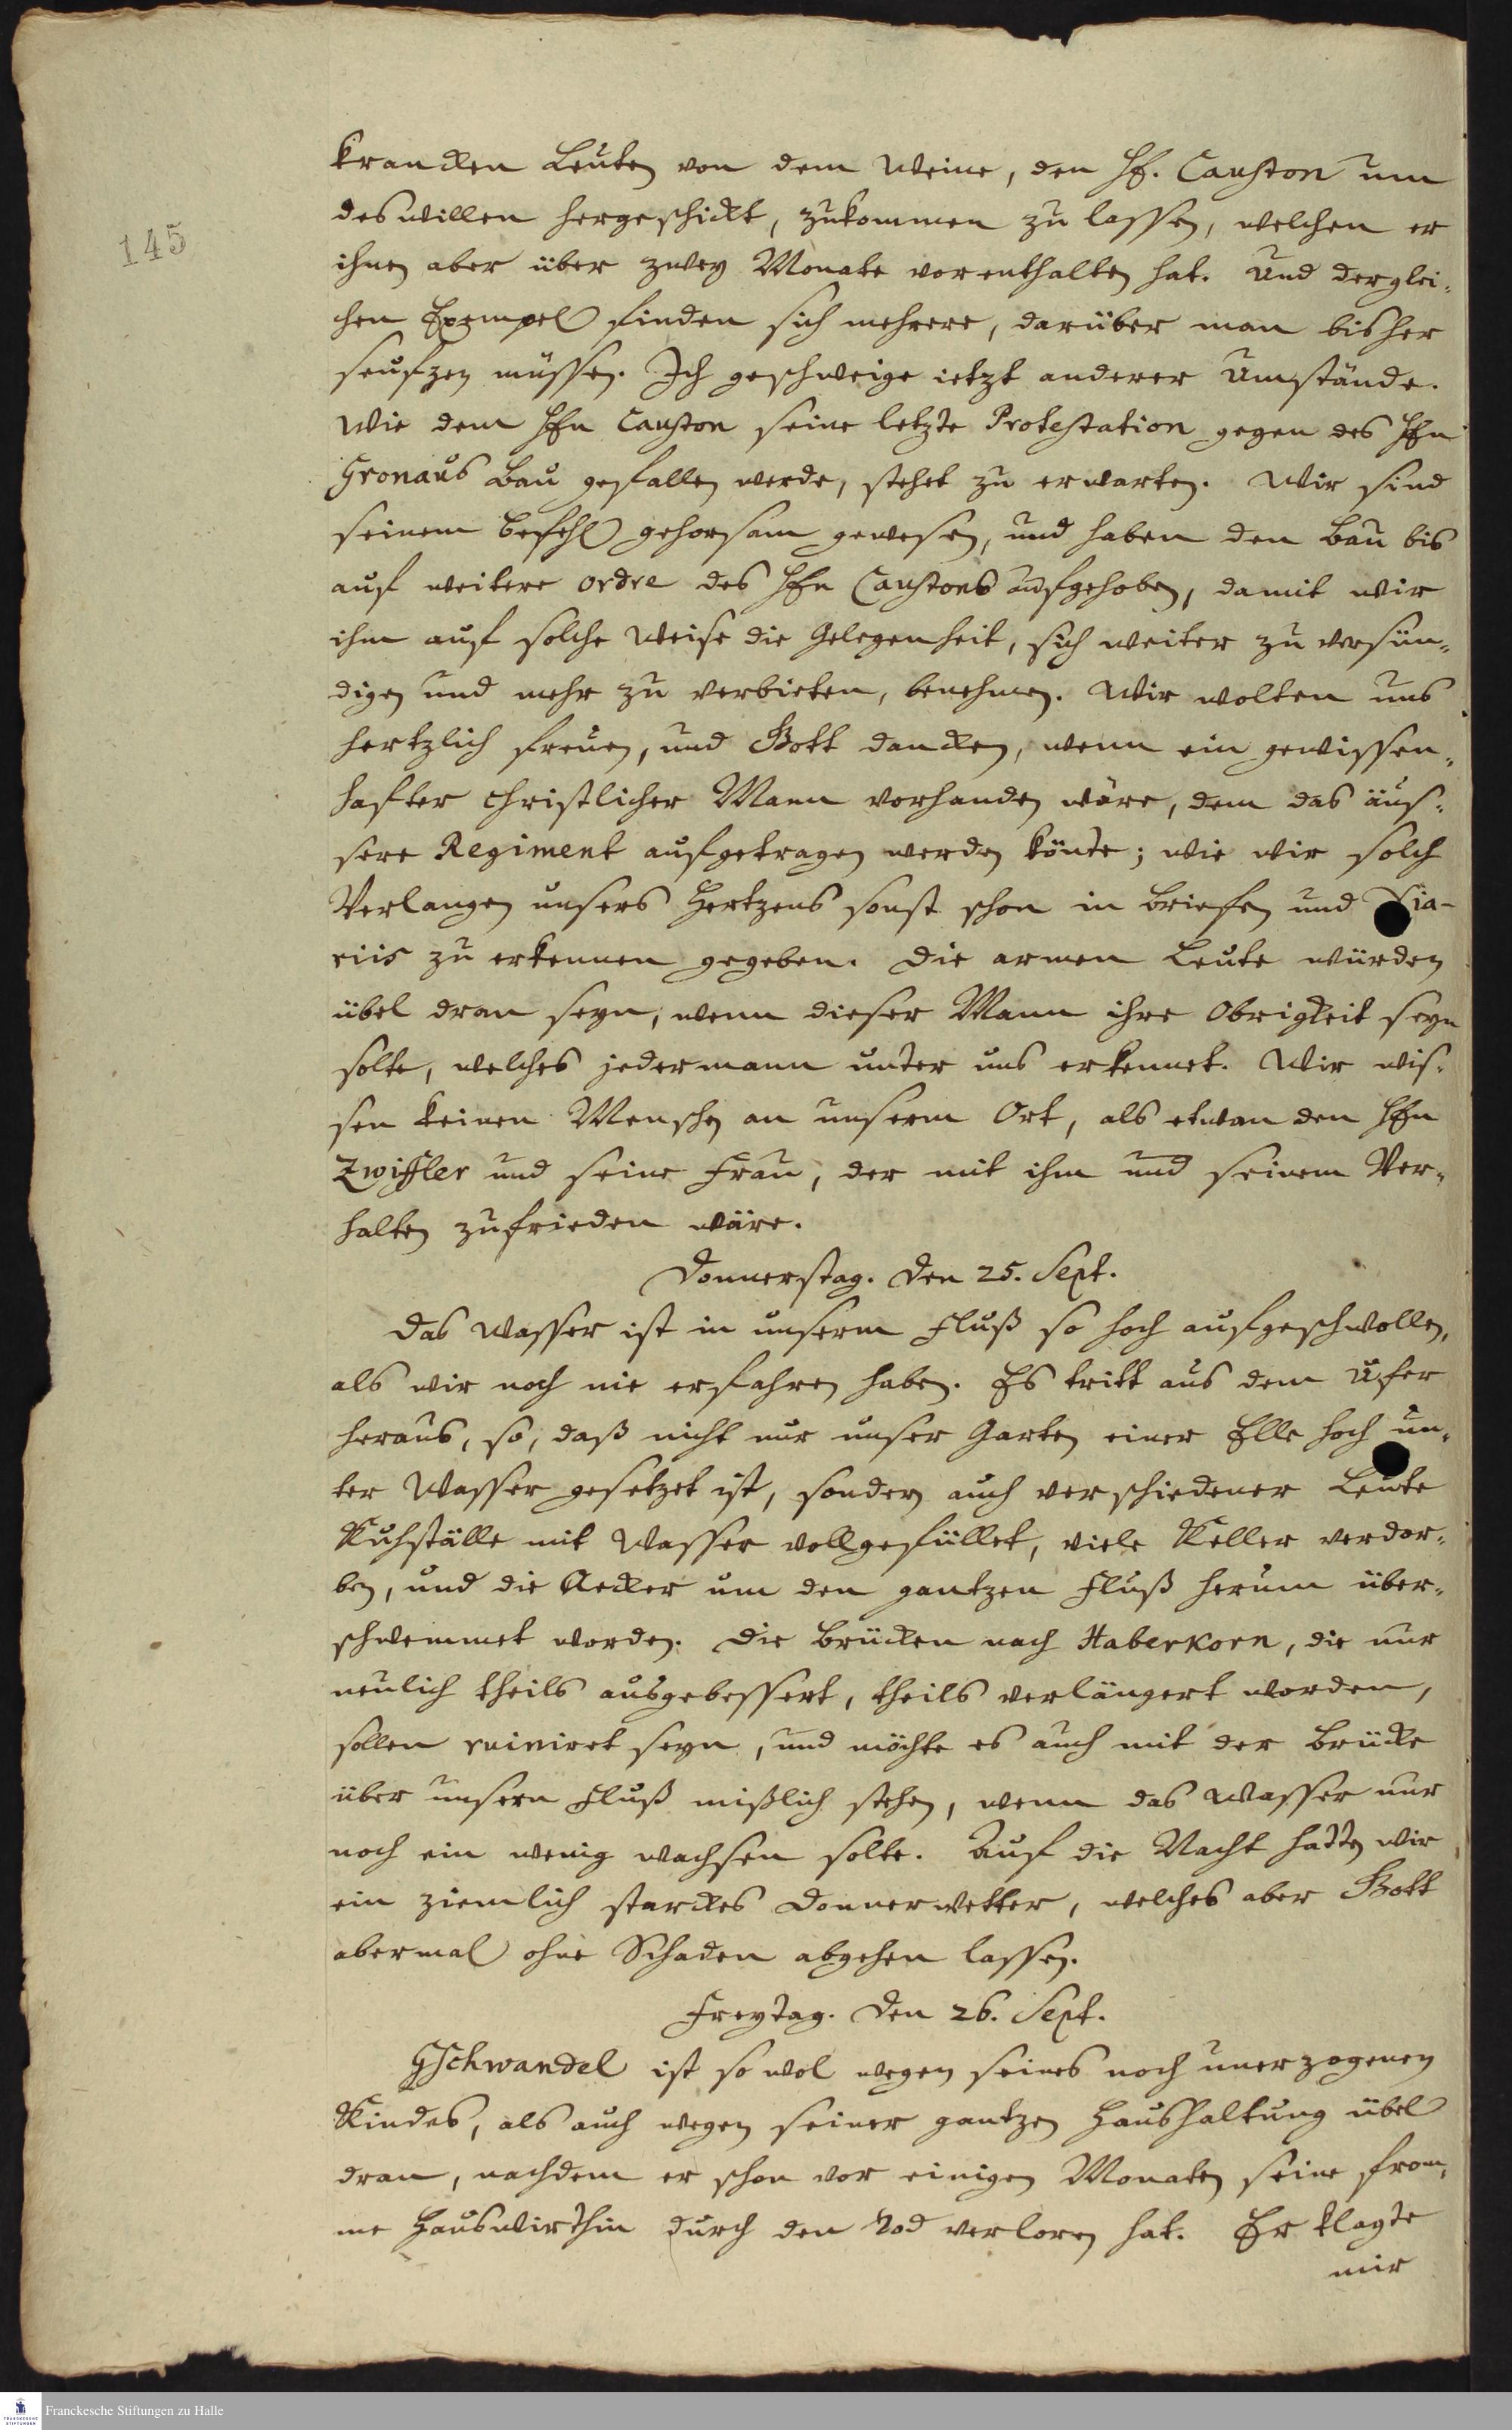 145
krancken Leuten von dem Weine, den Hr. Causton um
deswillen hergeschickt, zukommen zu lassen, welchen er
ihnen aber über zwey Monate vorenthalten hat. Und derglei-
chen Exempel finden sich mehrere, darüber man bisher
seufzen müssen. Ich geschweige ietzt anderer Umstände.
Wie dem Hrn Causton seine letzte Protestation gegen des Hrn
Gronaus Bau gefallen werde, stehet zu erwarten. Wir sind
seinem Befehl gehorsam gewesen, und haben den Bau bis
auf weitere ordre des Hrn Caustons aufgehoben, damit wir
ihm auf solche Weise die Gelegenheit, sich weiter zu versün-
digen und mehr zu verbieten, benehmen. Wir wolten uns
hertzlich freuen, und Gott dancken, wenn ein gewissen-
hafter christlicher Mann vorhanden wäre, dem das äus-
sere Regiment aufgetragen werden könte; wie wir solch
Verlangen unsers Hertzens sonst schon in Briefen und Dia-
riis zu erkennen gegeben. Die armen Leute würden
übel dran seyn, wenn dieser Mann ihre Obrigkeit seyn
solte, welches jedermann unter uns erkennet. Wir wis-
sen keinen Menschen an unserm Ort, als etwan den Hrn
Zwiffler und seine Frau, der mit ihm und seinem Ver-
halten zufrieden wäre.
Donnerstag. Den 25. Sept.
Das Wasser ist in unserm Fluß so hoch aufgeschwollen,
als wir noch nie erfahren haben. Es tritt aus dem Ufer
heraus, so, daß nicht nur unser Garten einer Elle hoch un-
ter Wasser gesetzet ist, sondern auch verschiedener Leute
Kuhställe mit Wasser vollgefüllet, viele Keller verdor-
ben, und die Aecker um den gantzen Fluß herum über-
schwemmet worden. Die Brücken nach Haberkorn, die nur
neulich theils ausgebessert, theils verlängert worden,
sollen ruiniret seyn, und möchte es auch mit der Brücke
über unsern Fluß mißlich stehen, wenn das Wasser nur
noch ein wenig wachsen solte. Auf die Nacht hatten wir
ein ziemlich starckes Donnerwetter, welches aber Gott
abermal ohne Schaden abgehen lassen.
Freytag. Den 26. Sept.
Gschwandel ist so wol wegen seines noch unerzogenen
Kindes, als auch wegen seiner gantzen Haushaltung übel
dran, nachdem er schon vor einigen Monaten seine from-
me Hauswirthin durch den Tod verloren hat. Er klagte
mir
Franckesche Stiftungen zu Halle